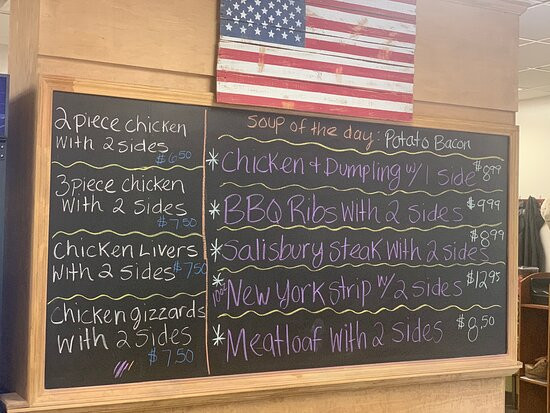 2 piece chicken
with 2 sides
$6.50
3 piece chicken
with 2 sides
$7.50
Chicken Livers
with 2 sides $7.50
Chicken gizzards
with 2 sides
$7.50
Soup of the day: Potato Bacon
* Chicken + Dumpling w/ 1 side $8.99
* BBQ Ribs with 2 sides $9.99
* Salisbury steak with 2 sides $8.99
* 10oz New York strip w/ 2 sides $12.95
* Meatloaf with 2 sides $8.50